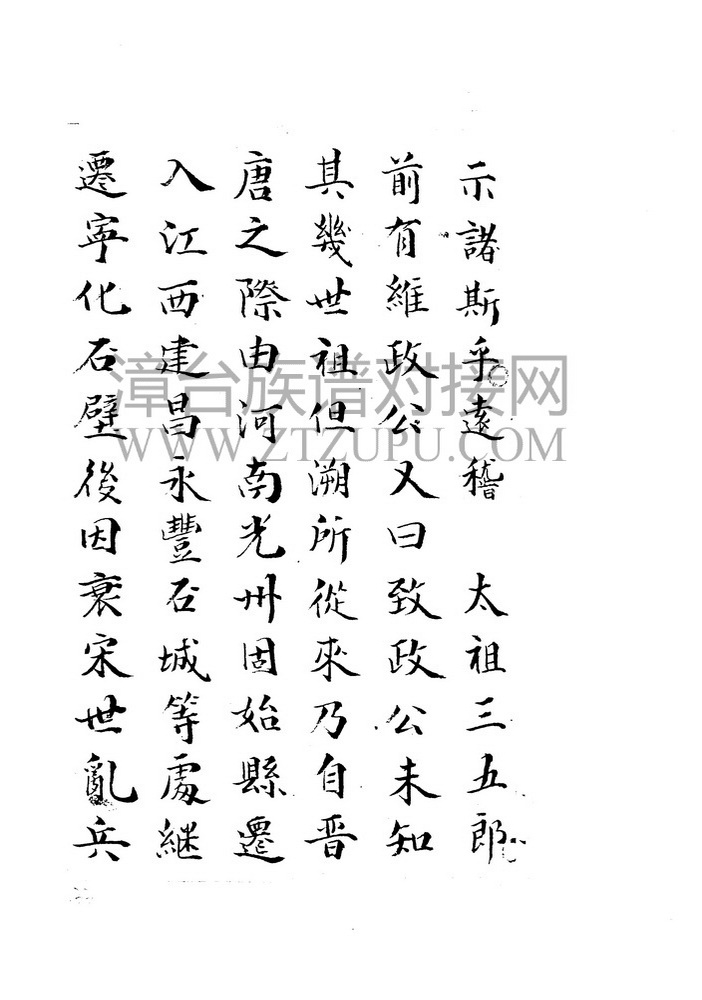 示諸斯乎遠稽　太祖三五郎
前有維政公又曰致政公未知
其幾世祖但溯所從來乃自晉
唐之際由河南光州固始縣遷
入江西建昌永豐石城等處継
遷寧化石壁後因衰宋世亂兵
漳台族谱对接网
WWW.ZTZUPU.COM